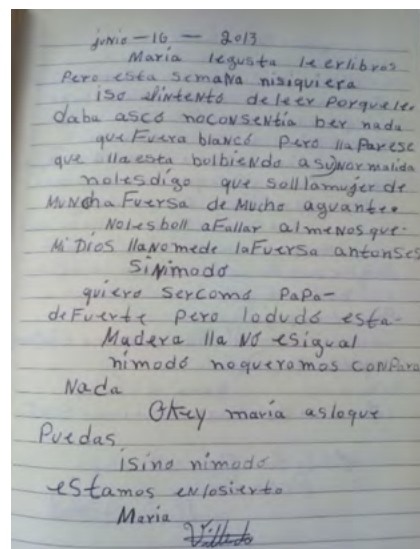 junio-16 — 2013
María legusta leerlibros
Pero esta semana nisiquiera
iso elintento deleer porquele
daba asco noconsentía ber nada
queFuera blanco Pero llaParese
que llaesta bolbiendo asunormalida
nolesdigo que solllamujer de
Muncha Fuersa de Mucho aguante.
Nolesboll aFallar almenosque.
Mi Dios llanomede laFuersa antonses
SiNimodo
quiero sercomo PaPa-
deFuerte Pero lodudo esta-
Madera lla No esigual
nimodo noqueramos conpara
Nada
Okey maria asloque
Puedas
isino nimodo
estamos enlosierto
Maria
Villedo